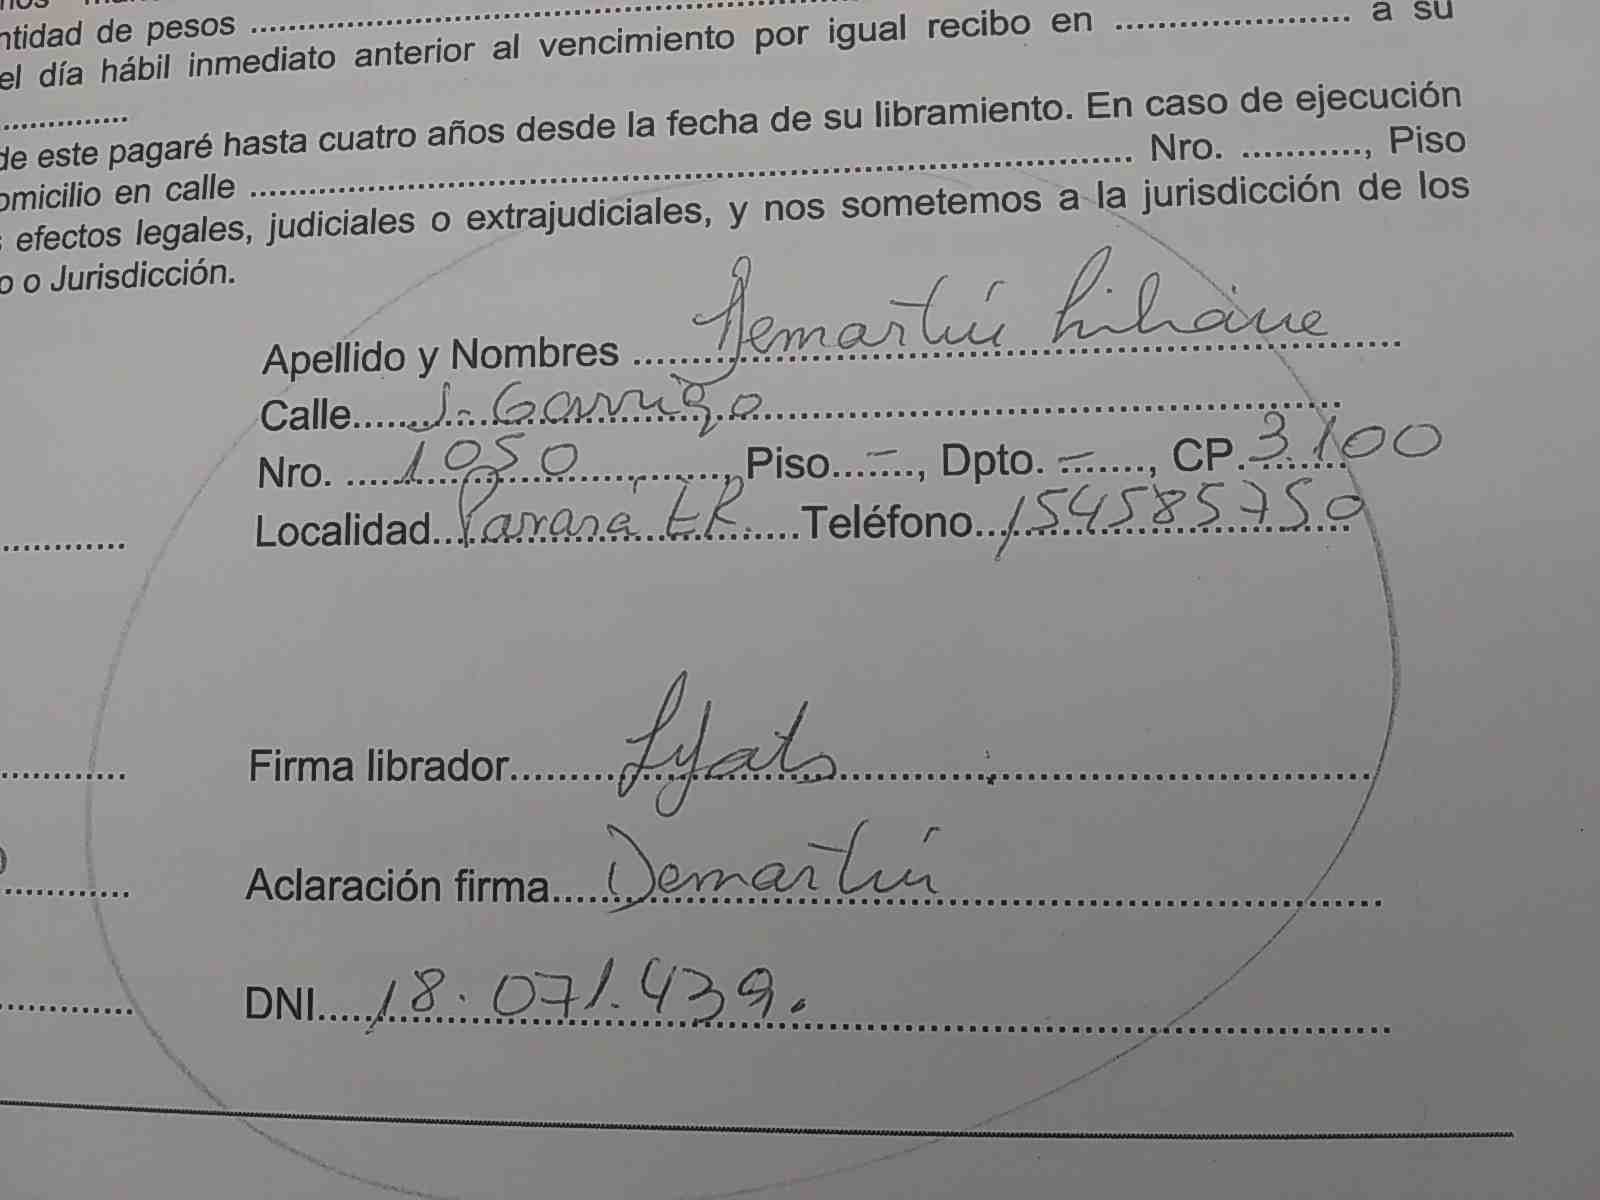 ntidad de pesos ........................................
el día hábil inmediato anterior al vencimiento por igual recibo en ...................... a su
.............
de este pagaré hasta cuatro años desde la fecha de su libramiento. En caso de ejecución
omicilio en calle ........................................ Nro. ..........., Piso
s efectos legales, judiciales o extrajudiciales, y nos sometemos a la jurisdicción de los
o o Jurisdicción.
Apellido y Nombres Demartín Liliane
Calle J. Garrigo
Nro. 1050, Piso -, Dpto. -, CP. 3100
Localidad Paraná E.R. Teléfono 154585750
Firma librador
Aclaración firma Demartín
DNI 18.071.439.